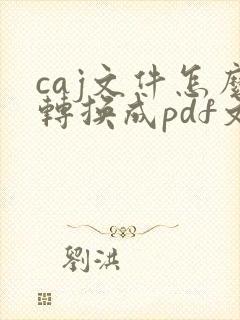 caj文件怎麼
轉換成pdf文
劉洪